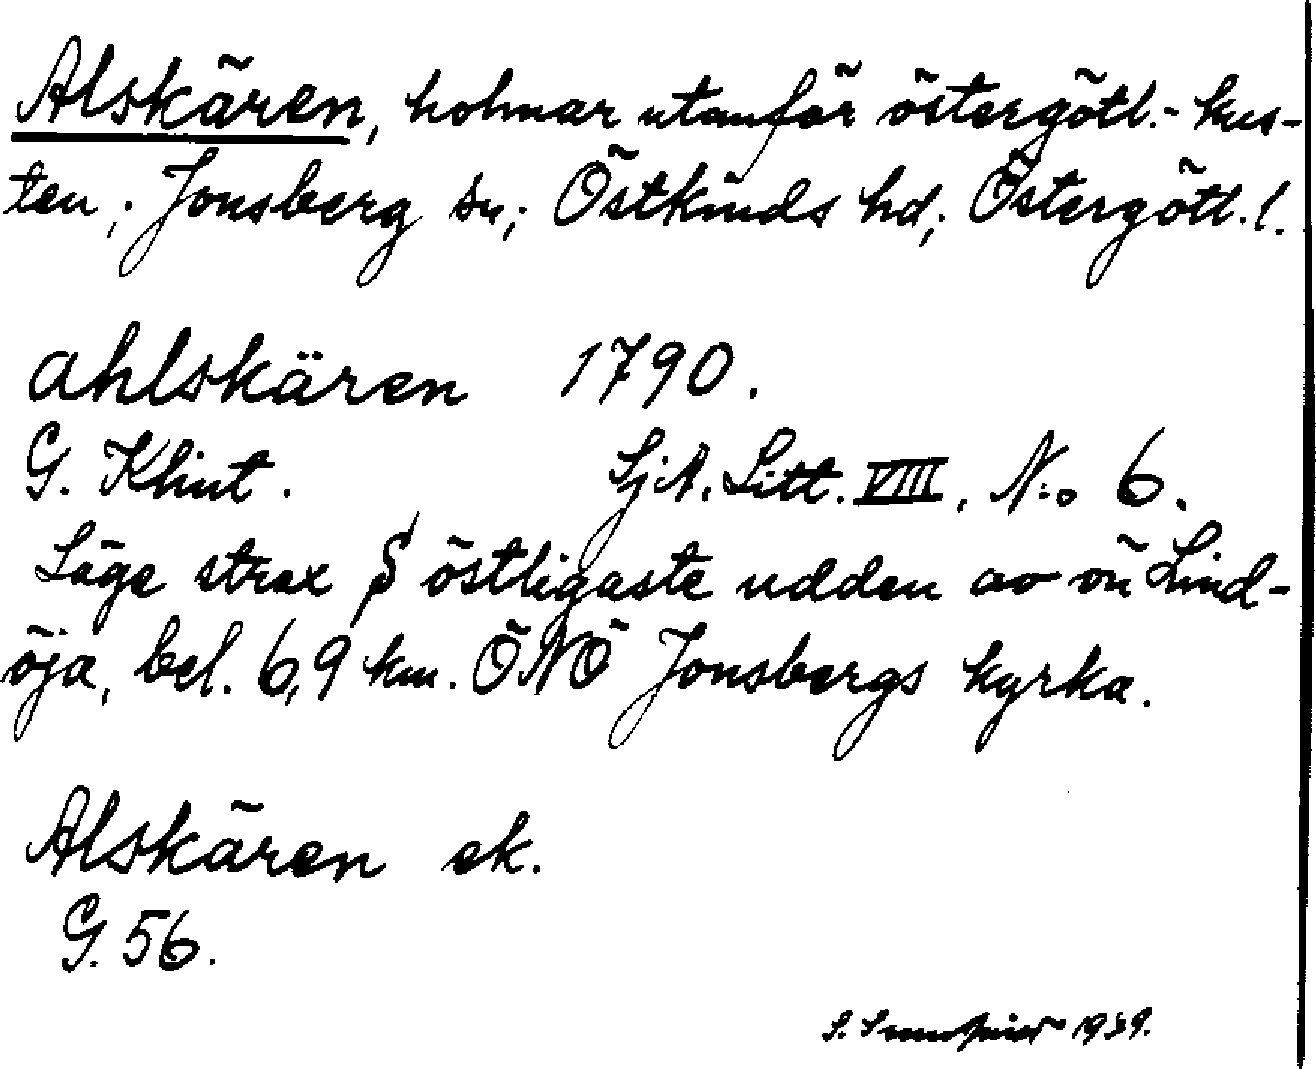 Alskären, holmar utanför östergötl.-kus-
ten; Jonsberg sn; Östkinds hd; Östergötl. l.
ahlskären 1790.
G. Klint. SjA. Litt. VIII, N:o 6.
Läge strax S östligaste udden av ön Lind-
öja, bel. 6,9 km. ÖNÖ Jonsbergs kyrka.
Alskären ek.
G. 56.
S. 1939.